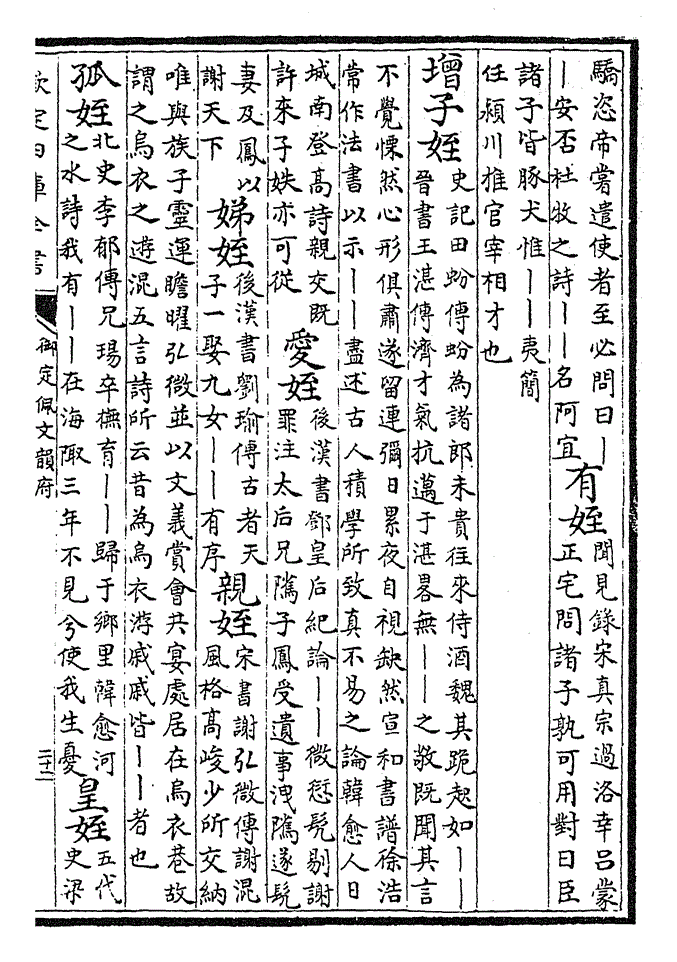 驕恣帝嘗遣使者至必問曰丨
丨安否杜牧之詩丨丨名阿宜
有姪
聞見錄宋真宗過洛幸吕蒙
正宅問諸子孰可用對曰臣
諸子皆豚犬惟丨丨夷簡
任潁川推官宰相才也
增子姪
史記田蚡傳蚡為諸郎未貴往來侍酒魏其跪起如丨丨
晉書王湛傳濟才氣抗邁于湛畧無丨丨之敬既聞其言
不覺慄然心形俱肅遂留連彌日累夜自視缺然宣和書譜徐浩
常作法書以示丨丨盡述古人積學所致真不易之論韓愈人日
城南登高詩親交既
許來子妷亦可從
愛姪
後漢書鄧皇后紀論丨丨微愆髡剔謝
罪注太后兄騭子鳳受遺事洩騭遂髡
妻及鳳以
謝天下
娣姪
後漢書劉瑜傳古者天
子一娶九女丨丨有序
親姪
宋書謝弘微傳謝混
風格高峻少所交納
唯與族子靈運瞻曜弘微並以文義賞會共宴處居在烏衣巷故
謂之烏衣之遊混五言詩所云昔為烏衣游戚戚皆丨丨者也
孤姪
北史李郁傳兄瑒卒撫育丨丨歸于鄉里韓愈河
之水詩我有丨丨在海陬三年不見兮使我生憂
皇姪
五代
史梁
欽定四庫全書
御定佩文韻府
二十二